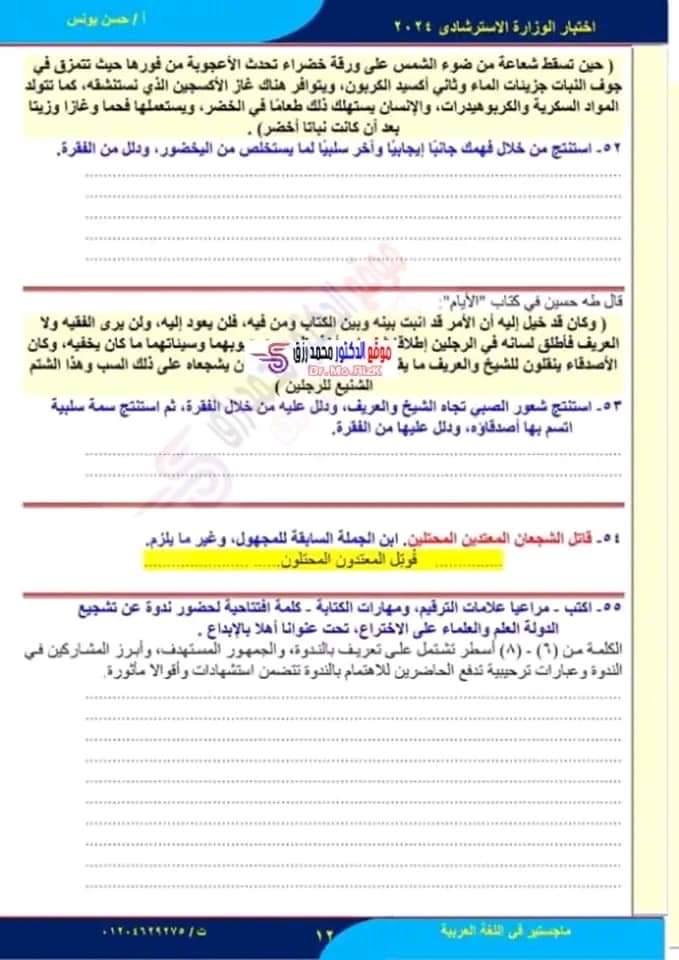 اختبار الوزارة الاسترشادى ٢٠٢٤
أ / حسن يونس
( حين تسقط شعاعة من ضوء الشمس على ورقة خضراء تحدث الأعجوبة من فورها حيث تتمزق في
جوف النبات جزيئات الماء وثاني أكسيد الكربون، ويتوافر هناك غاز الأكسجين الذي نستنشقه، كما تتولد
المواد السكرية والكربوهيدرات، والإنسان يستهلك ذلك طعامًا في الخضر، ويستعملها فحما وغازا وزيتا
بعد أن كانت نباتا أخضر) .
٥٢- استنتج من خلال فهمك جانبًا إيجابيًا وآخر سلبيًا لما يستخلص من اليخضور، ودلل من الفقرة.
قال طه حسين في كتاب "الأيام":
( وكان قد خيل إليه أن الأمر قد انبت بينه وبين الكتاب ومن فيه، فلن يعود إليه، ولن يرى الفقيه ولا
العريف فأطلق لسانه في الرجلين إطلاقا وبهما وسيئاتهما ما كان يخفيه، وكان
الأصدقاء ينقلون للشيخ والعريف ما يق ن يشجعاه على ذلك السب وهذا الشتم
الشنيع للرجلين )
موقع الدكتور محمد رزق
Dr.Mo.RizK
٥٣- استنتج شعور الصبي تجاه الشيخ والعريف، ودلل عليه من خلال الفقرة، ثم استنتج سمة سلبية
اتسم بها أصدقاؤه، ودلل عليها من الفقرة.
٥٤- قاتل الشجعان المعتدين المحتلين. ابن الجملة السابقة للمجهول، وغير ما يلزم.
.............. قُوتِل المعتدون المحتلون...... ......................
٥٥- اكتب - مراعيا علامات الترقيم، ومهارات الكتابة - كلمة افتتاحية لحضور ندوة عن تشجيع
الدولة العلم والعلماء على الاختراع، تحت عنوانا أهلا بالإبداع .
الكلمة من (٦) - (٨) أسطر تشتمل على تعريف بالندوة، والجمهور المستهدف، وأبرز المشاركين في
الندوة وعبارات ترحيبية تدفع الحاضرين للاهتمام بالندوة تتضمن استشهادات وأقوالا مأثورة.
ماجستير فى اللغة العربية
١٢
ت / ٠١٢٠٤٦٢٩٢٧٥